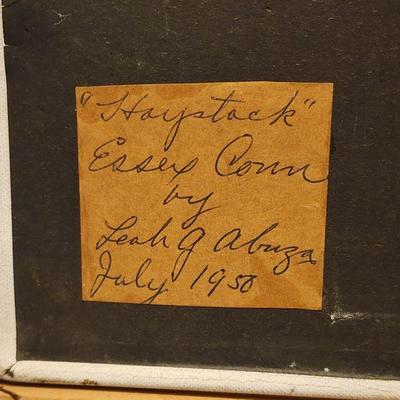 "Haystack"
Essex Conn
by
Leah G Abuza
July 1950